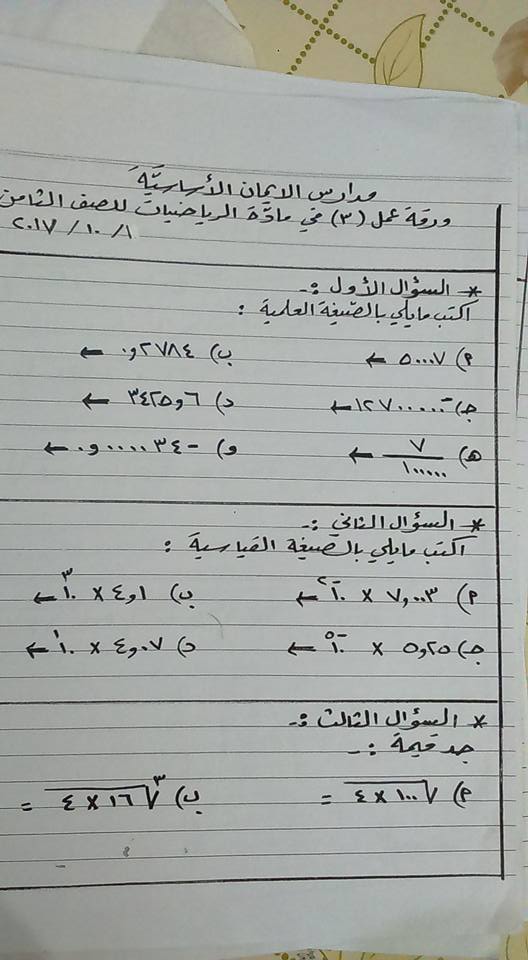 مدارس الإيمان الأساسيّة
ورقة عمل (٣) في مادّة الرياضيات للصف الثامن
١ / ١٠ / ٢٠١٧
* السؤال الأول :-
اكتب ما يلي بالصّيغة العلمية :
أ) ٥٠٠٠٧ ← ب) ٠و٢٧٨٤ ←
جـ) -١٢٧٠٠٠٠٠ ← د) ٣٤٢٥و٦ ←
هـ) ٧/١٠٠٠٠٠ ← و) -٠و٠٠٠٠٣٤ ←
* السؤال الثاني :-
اكتب ما يلي بالصيغة القياسية :
أ) ٧و٠٠٣ × ١٠⁻² ← ب) ٤و١ × ١٠³ ←
جـ) ٥و٢٥ × ١٠⁻⁵ ← د) ٤و٠٧ × ١٠¹ ←
* السؤال الثالث :-
جد قيمة :-
أ) √١٠٠ × ٤ = ب) ∛١٦ × ٤ =